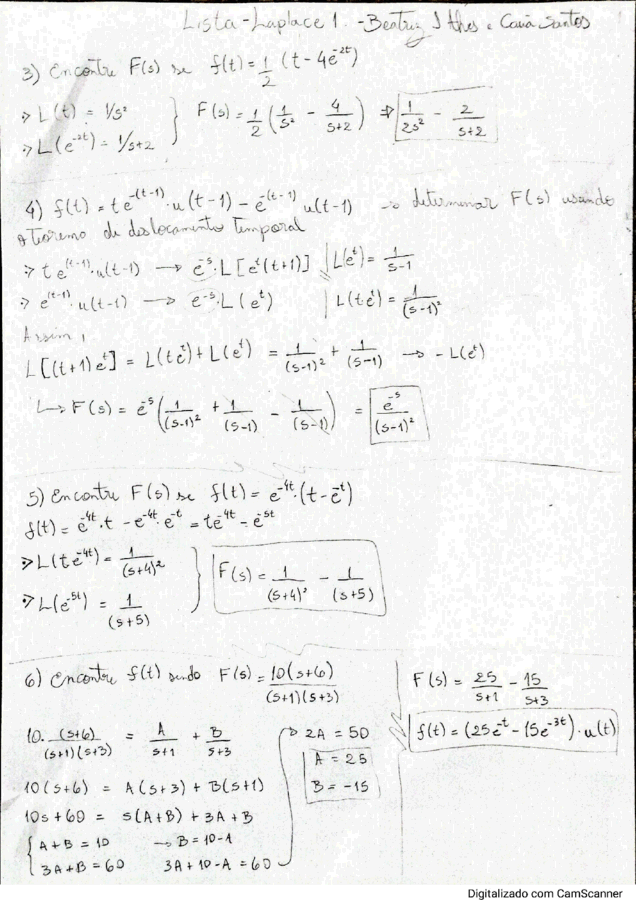 Lista-Laplace 1. - Beatriz Ithes e Cauã Santos
3) Encontre F(s) se f(t) = 1/2 (t - 4e^-2t)
> L(t) = 1/s² } F(s) = 1/2 (1/s² - 4/(s+2)) ⇒ 1/2s² - 2/(s+2)
> L(e^-2t) = 1/s+2
4) f(t) = te^-(t-1) · u(t-1) - e^-(t-1) u(t-1) → determinar F(s) usando
o Teoremo de deslocamento Temporal
> te^(t-1) · u(t-1) → e^-s · L[e^t(t+1)] | L(e^t) = 1/(s-1)
> e^(t-1) · u(t-1) → e^-s · L(e^t) | L(te^t) = 1/(s-1)²
Assim,
L[(t+1)e^t] = L(te^t) + L(e^t) = 1/(s-1)² + 1/(s-1) → - L(e^t)
↳ F(s) = e^-s (1/(s-1)² + 1/(s-1) - 1/(s-1)) = e^-s/(s-1)²
5) Encontre F(s) se f(t) = e^-4t · (t - e^-t)
f(t) = e^-4t · t - e^-4t · e^-t = te^-4t - e^-5t
> L(te^-4t) = 1/(s+4)² } F(s) = 1/(s+4)² - 1/(s+5)
> L(e^-5t) = 1/(s+5)
6) Encontre f(t) sendo F(s) = 10(s+6)/(s+1)(s+3)
10 · (s+6)/(s+1)(s+3) = A/(s+1) + B/(s+3)
10(s+6) = A(s+3) + B(s+1)
10s + 60 = s(A+B) + 3A + B
{ A + B = 10 → B = 10-A
3A + B = 60 3A + 10 - A = 60
→ 2A = 50
A = 25
B = -15
F(s) = 25/(s+1) - 15/(s+3)
f(t) = (25e^-t - 15e^-3t) · u(t)
Digitalizado com CamScanner